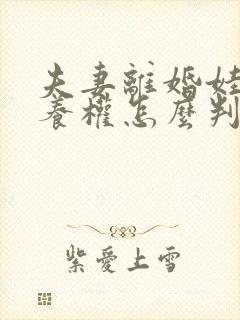 夫妻離婚娃
養權怎麼判
紫愛上雪